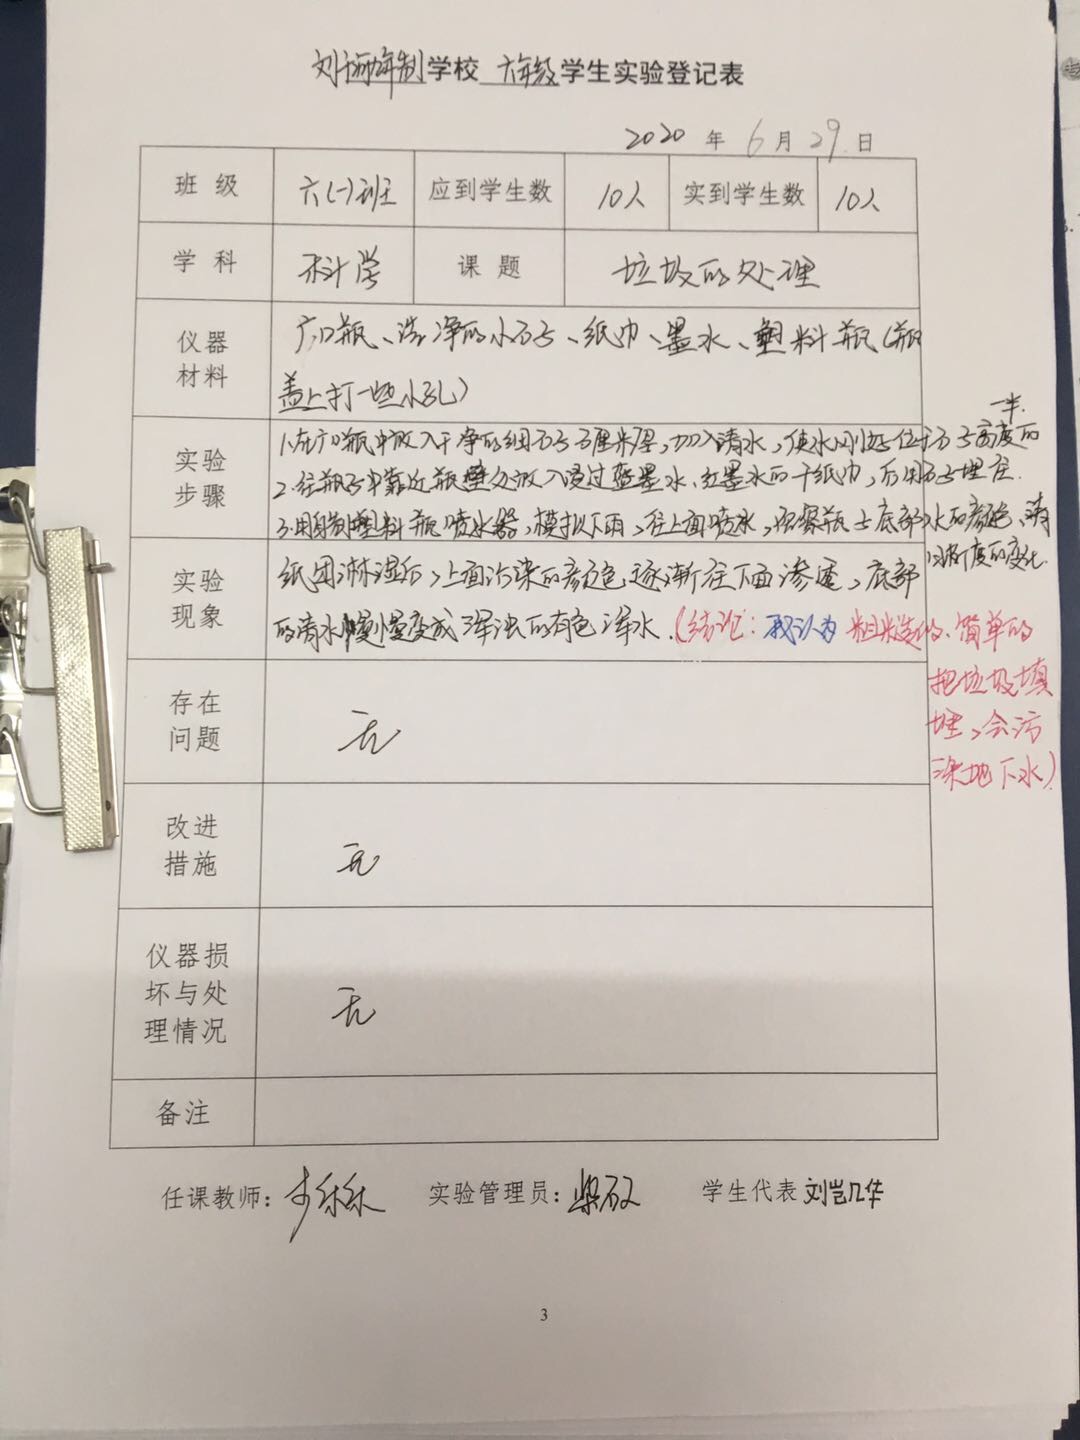 学校 六年级 学生实验登记表
2020 年 6 月 29 日
班 级 六(一)班 应到学生数 10人 实到学生数 10人
学 科 科学 课 题 垃圾的处理
仪器
材料
广口瓶、洗净的小石子、纸巾、墨水、塑料瓶(瓶
盖上打一些小孔)
实验
步骤
1.在广口瓶中放入干净的细石子5厘米厚,加入清水,使水刚好位于石子高度的
一半.
2.往瓶子中靠近瓶壁处放入浸过蓝墨水、红墨水的干纸巾,后用石子埋住.
3.用自制塑料瓶喷水器,模拟下雨,往上面喷水,观察瓶子底部水的颜色、清
晰度的变化.
实验
现象
纸团淋湿后,上面污染的颜色逐渐往下面渗透,底部
的清水慢慢变成浑浊的有色浑水.(结论:我认为粗糙的、简单的
把垃圾填
埋,会污
染地下水)
存在
问题
无
改进
措施
无
仪器损
坏与处
理情况
无
备注
任课教师: 实验管理员: 学生代表
3